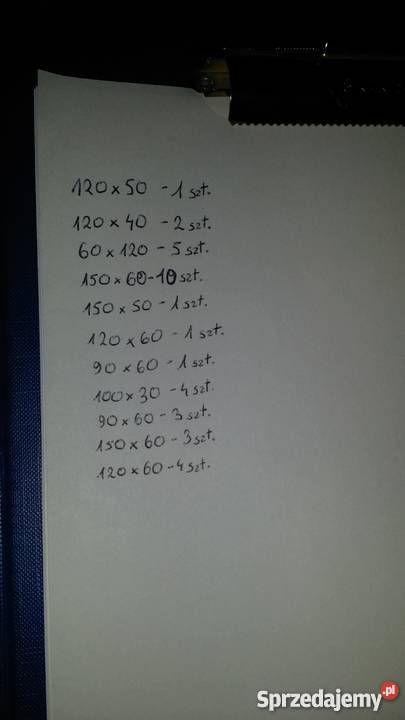 120 x 50 - 1 szt.
120 x 40 - 2 szt.
60 x 120 - 5 szt.
150 x 60 - 10 szt.
150 x 50 - 1 szt.
120 x 60 - 1 szt.
90 x 60 - 1 szt.
100 x 30 - 4 szt.
90 x 60 - 3 szt.
150 x 60 - 3 szt.
120 x 60 - 4 szt.
Sprzedajemy.pl